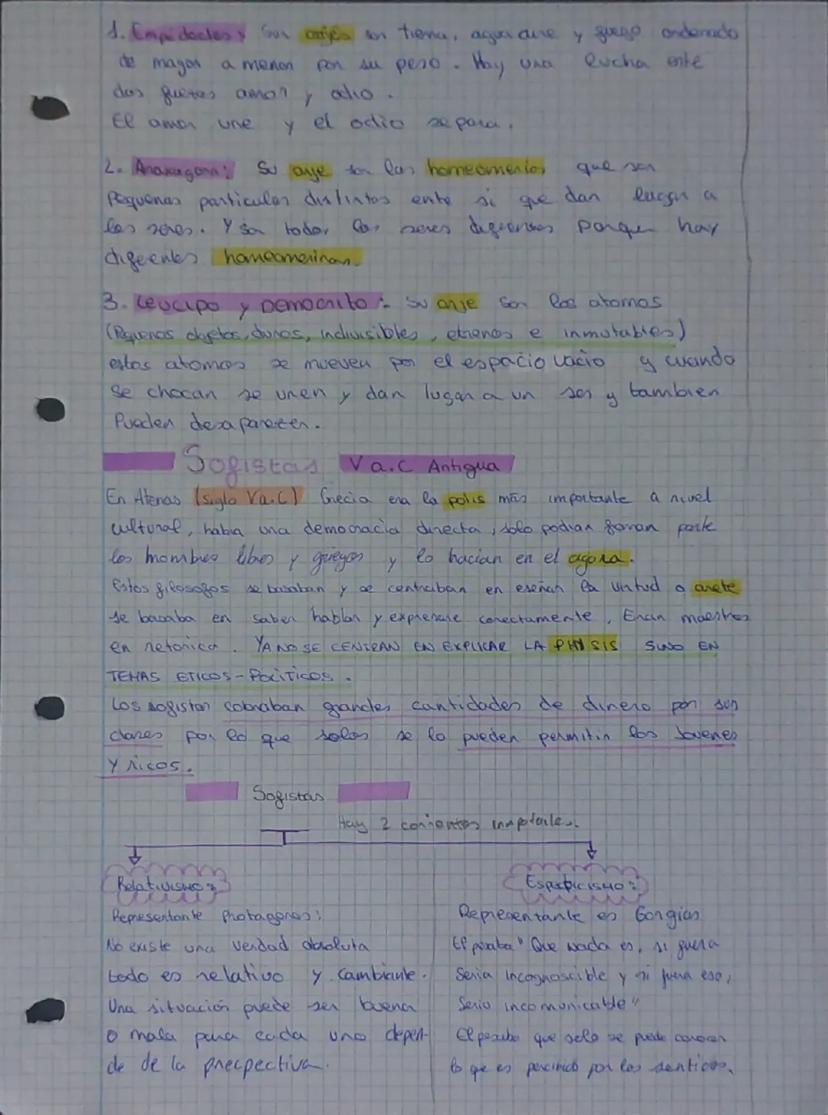 1. Empedocles: Sus arjés son tierra, agua aire y fuego ordenado
de mayor a menor por su peso. Hay una lucha ente
dos fuerzas amor y odio.
El amor une y el odio separa.
2. Anaxagora: Su arje son las homeomerias que son
Pequenas particulas distintas ente si que dan lugar a
los seres. Y son todos los seres diferentes porque hay
difeentes homeomerinas.
3. Leucipo y Democrito: Su arje son los atomos
(Pequenos objetos, duros, indivisibles, eternos e inmutables)
estos atomos se mueven por el espacio vacio y cuando
se chocan se unen y dan lugar a un ser y tambien
Pueden desaparecer.
Sofistas V a.C Antigua
En Atenas (siglo V a.C) Grecia era la polis más importante a nivel
cultural, habia una democracia directa, solo podian formar parte
los hombres libres y griegos y lo hacian en el agora.
Estos filosofos se basaban y se centraban en enseñar la virtud o arete
se basaba en saber hablar y expresarse correctamente, Eran maestros
en retorica. YA NO SE CENTRAN EN EXPLICAR LA PHYSIS SINO EN
TEMAS ETICOS-POLITICOS.
Los sofistas cobraban grandes cantidades de dinero por sus
clases por lo que solos se lo pueden permitir los Jovenes
Y ricos.
Sofistas
Hay 2 corrientes importantes.
Relativismo:
Representante Protagoras:
No existe una verdad absoluta
todo es relativo y cambiante.
Una situación puede ser buena
o mala para cada uno depen-
de de la precpectiva.
Escepticismo:
Representante es Gorgias
El pensaba "Que nada es, si fuera
Seria Incognoscible y si fuera eso,
Serio incomunicable"
El pensaba que solo se puede conocer
lo que es percibido por los sentidos.